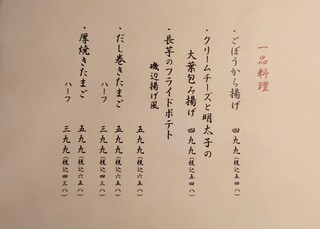 一品料理
・ごぼうから揚げ 四九九(税込五四八)
・クリームチーズと明太子の
大葉包み揚げ 四九九(税込五四八)
・長芋のフライドポテト
磯辺揚げ風 五九九(税込六五八)
・だし巻きたまご 五九九(税込六五八)
ハーフ 三九九(税込四三八)
・厚焼きたまご 五九九(税込六五八)
ハーフ 三九九(税込四三八)